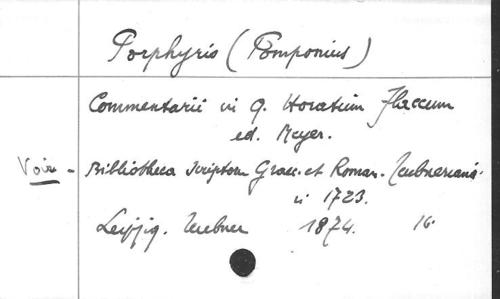 Porphyris (Pomponius)
Commentarii in Q. Horatium Flaccum
ed. Meyer.
Voir - Bibliotheca Scriptorum Graec. et Roman. Teubneriana.
n 1723.
Leipzig. Teubner 1874. 16.